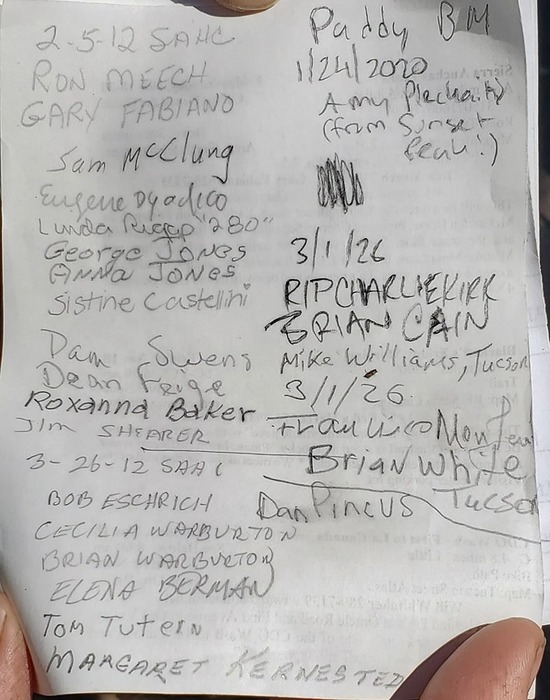 2-5-12 SAHC
RON MEECH
GARY FABIANO
Sam McClung
Eugene
Linda "280"
George Jones
Anna Jones
Sistine Castellini
Dam Owens
Dean Feige
Roxanna Baker
Jim SHEARER
3-26-12 SAAC
BOB ESCHRICH
CECILIA WARBURTON
BRIAN WARBURTON
ELENA BERMAN
Tom Tutern
MARGARET KERNESTED
Paddy BM
1/24/2020
Amy
(from Sunset
Peak!)
3/1/26
RIPCHARLIEKIRK
BRIAN CAIN
Mike Williams, Tucson
3/1/26
Brian White
Dan Pincus Tucson